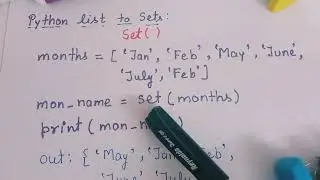 Python list to Sets:
Set()
months = [ 'Jan', 'Feb', 'May', 'June',
'July', 'Feb']
mon_name = set(months)
print(mon_n
out: { 'May', 'Jan',
'June',